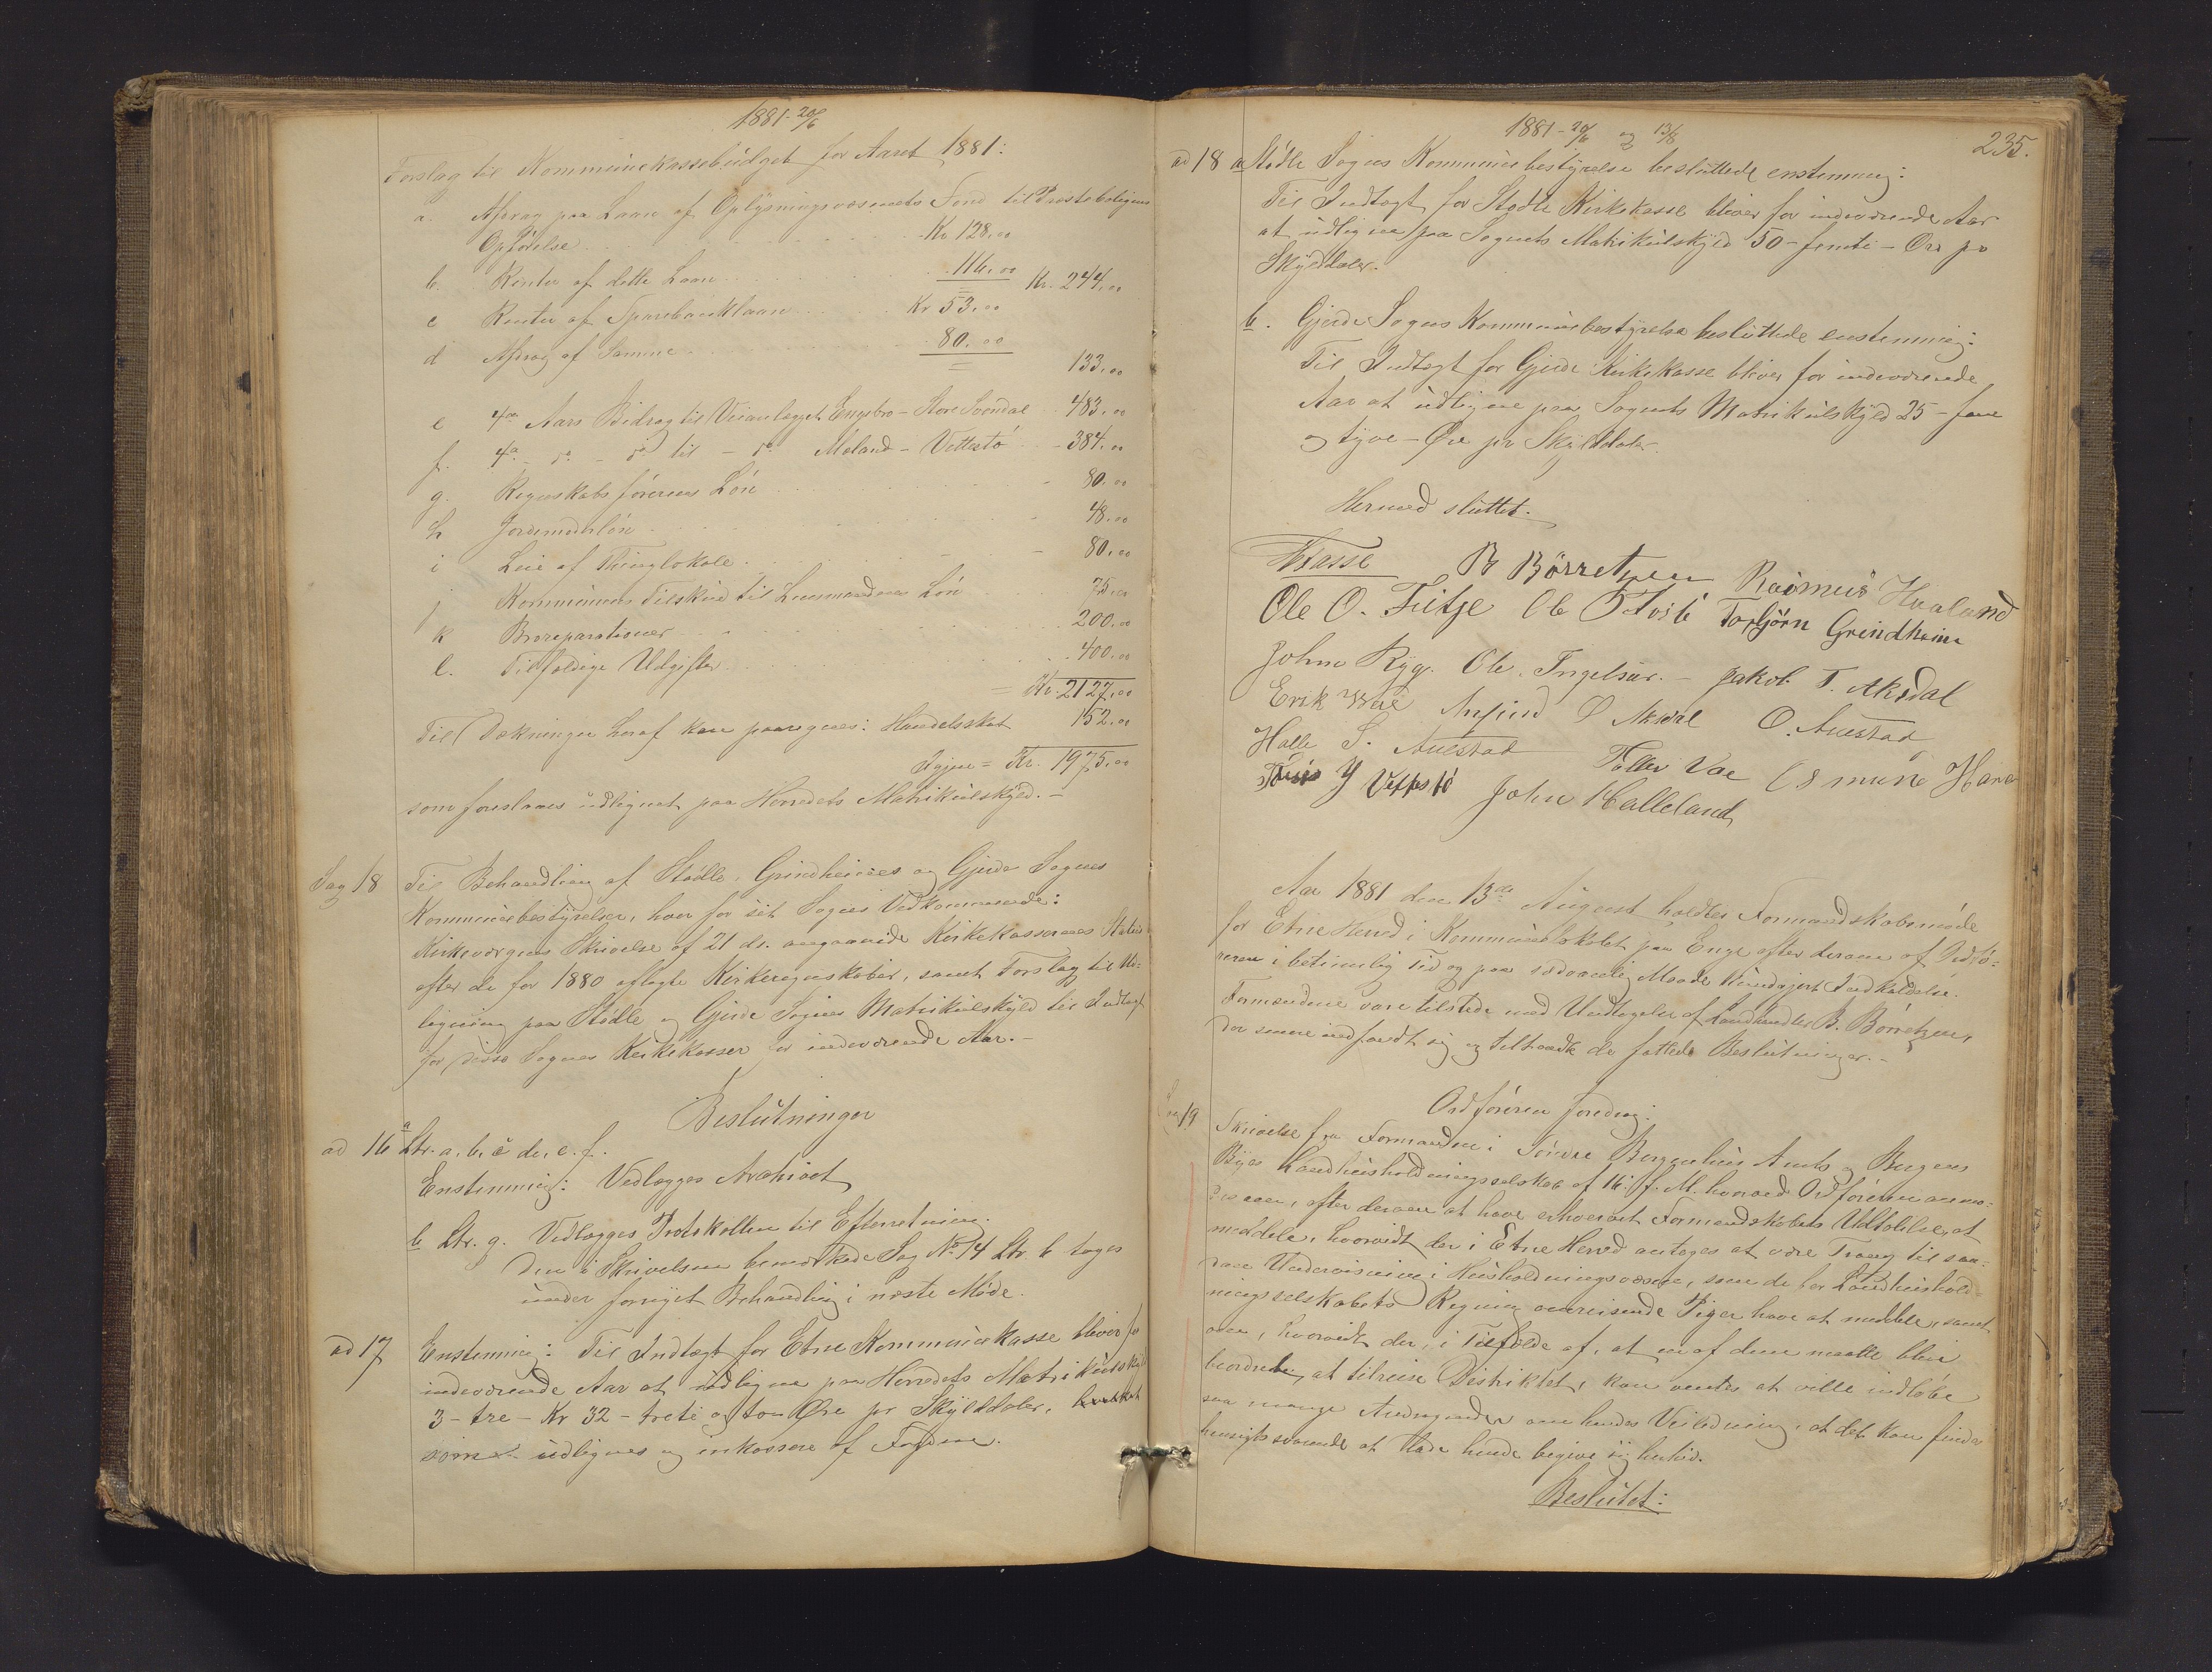 1881-20/6
Forslag til Kommunekassebudget for Aaret 1881:
a. Afdrag paa Laan af Oplysningsvæsenets Fond til Præsteboligens
Opførelse Kr 128.00
b. Renter af dette Laan 116.00 Kr. 244.00
c Renter af Sparebanklaan Kr 53.00
d Afdrag af Samme 80.00
133.00
e 4de Aars Bidrag til Veianlægget Engebro-Store Svendal 483.00
f. 4de do do til do Mæland-Vettestø 384.00
g. Regnskabsførerens Løn 80.00
h Jordemoderløn 48.00
i Leie af Thinglokale 80.00
j Kommunens Tilskud til Lensmandens Løn 75.00
k Broreparationer 200.00
l. Tilfældige Udgifter 400.00
= Kr. 2127.00
Til Dækningen heraf kan paaregnes: Handelsskat 152.00
Igjen = Kr. 1975.00
som foreslaaes udlignet paa Herredets Matrikulskyld.-
Sag 18 Til Behandling af Stødle, Grindheims og Gjerde Sognes
Kommunebestyrelser, hver for sit Sogns Vedkommende:
Kirkeværgens Skrivelse af 21 ds. angaaende Kirkekassernes Status
efter de for 1880 aflagte Kirkeregnskaber, samt Forslag til Ud-
ligning paa Stødle og Gjerde Sognes Matrikulskyld til Indtægt
for disse Sognes Kirkekasser for indeværende Aar.-
Beslutninger
ad 16 a Ltr. a. b. c d. e. f.
Enstemmig: Vedlægges Archivet
b Ltr. g. Vedlægges Protokollen til Efterretning.
Den i Skrivelsen bemærkede Sag No 14 Ltr. b tages
under fornyet Behandling i næste Møde.
ad 17 Enstemmig: Til Indtægt for Etne Kommunekasse bliver for
indeværende Aar at udligne paa Herredets Matrikulskyld
3-tre-Kr 32-treti og to-Øre pr Skylddaler,
som udlignes og inkassere af Fogden.
1881-20/6 og 13/8
235.
ad 18 a Stødle Sogns Kommunebestyrelse besluttede enstemmig:
Til Indtægt for Stødle Kirkekasse bliver for indeværende Aar
at udligne paa Sognets Matrikulskyld 50-femti-Øre pr
Skylddaler.
b. Gjerde Sogns Kommunebestyrelse besluttede enstemmig:
Til Indtægt for Gjerde Kirkekasse bliver for indeværende
Aar at udligne paa Sognets Matrikulskyld 25-fem
og tyve-Øre pr Skylddaler.
Hermed sluttet.
B Børretzen Rasmus Haaland
Ole O. Fitje Ole Torbjørn Grindheim
John Ryg. Ole. Ingelsur.- Jakob T. Aksdal
Erik Arfind O Aksdal O. Austad
Halle S. Austad Tollev Vae Osmund Hare
Y Vettestø John Halleland
Aar 1881 den 13de August holdtes Formandskabsmøde
for Etne Herred i Kommunelokalet paa Enge efter derom af Ordfø-
reren i betimelig Tid og paa sædvanlig Maade kundgjort Indkaldelse.
Formændene vare tilstede med Undtagelse af Landhandler B. Børretzen,
der senere indfandt sig og tiltraadte de fattede Beslutninger.-
Ordføreren foredrog:
Sag 19 Skrivelse fra Formanden i Søndre Bergenhus Amts og Bergens
Byes Landhusholdningsselskab af 16. f. M. hvorved Ordføreren anmo-
des om, efter derom at have erhvervet Formandskabets Udtalelse, at
meddele, hvorvidt der i Etne Herred antages at være Trang til saa-
dan Undervisning i Husholdningsvæsen, som de for Landhushold-
ningsselskabets Regning omreisende Piger have at meddele, samt
om, hvorvidt der, i Tilfælde af, at en af dem maatte blive
beordret, at tilreise Distriktet, kan ventes at ville indløbe
saa mange Andragender om hendes Veiledning, at det kan findes
hensigtssvarende at lade hende begive sig herhid.
Beslutet: